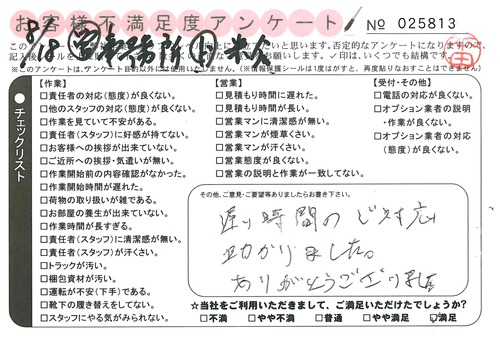 お客様不満足度アンケート
No 025813
8/18
このアンケート
思います。否定的なアンケートになりますので、
お願いします。✓印は、いくつでも結構です。
(※このアンケートは、アンケート目的以外には使用いたしません。)(※情報保護シールは1度はがすと、再度貼りなおすことはできません)
チェックリスト
【作業】
□責任者の対応(態度)が良くない。
□他のスタッフの対応(態度)が良くない。
□作業を見ていて不安がある。
□責任者(スタッフ)に好感が持てない。
□お客様への挨拶が出来ていない。
□ご近所への挨拶・気遣いが無い。
□作業開始前の内容確認がなかった。
□作業開始時間が遅れた。
□荷物の取り扱いが雑である。
□お部屋の養生が出来ていない。
□作業時間が長すぎる。
□責任者(スタッフ)に清潔感が無い。
□責任者(スタッフ)が汗くさい。
□トラックが汚い。
□梱包資材が汚い。
□運転が不安(下手)である。
□靴下の履き替えをしてない。
□スタッフにやる気がみられない。
【営業】
□見積もり時間に遅れた。
□見積もり時間が長い。
□営業マンに清潔感が無い。
□営業マンが煙草くさい。
□営業マンが汗くさい。
□営業態度が良くない。
□営業の説明と作業が一致してない。
【受付・その他】
□電話の対応が良くない。
□オプション業者の説明
・作業が良くない。
□オプション業者の対応
(態度)が良くない。
その他、ご意見・ご要望等ありましたらお書き下さい。
遅い時間のご対応
助かりました。
ありがとうございました
☆当社をご利用いただきまして、ご満足いただけたでしょうか?
□不満 □やや不満 □普通 □やや満足 ☑満足